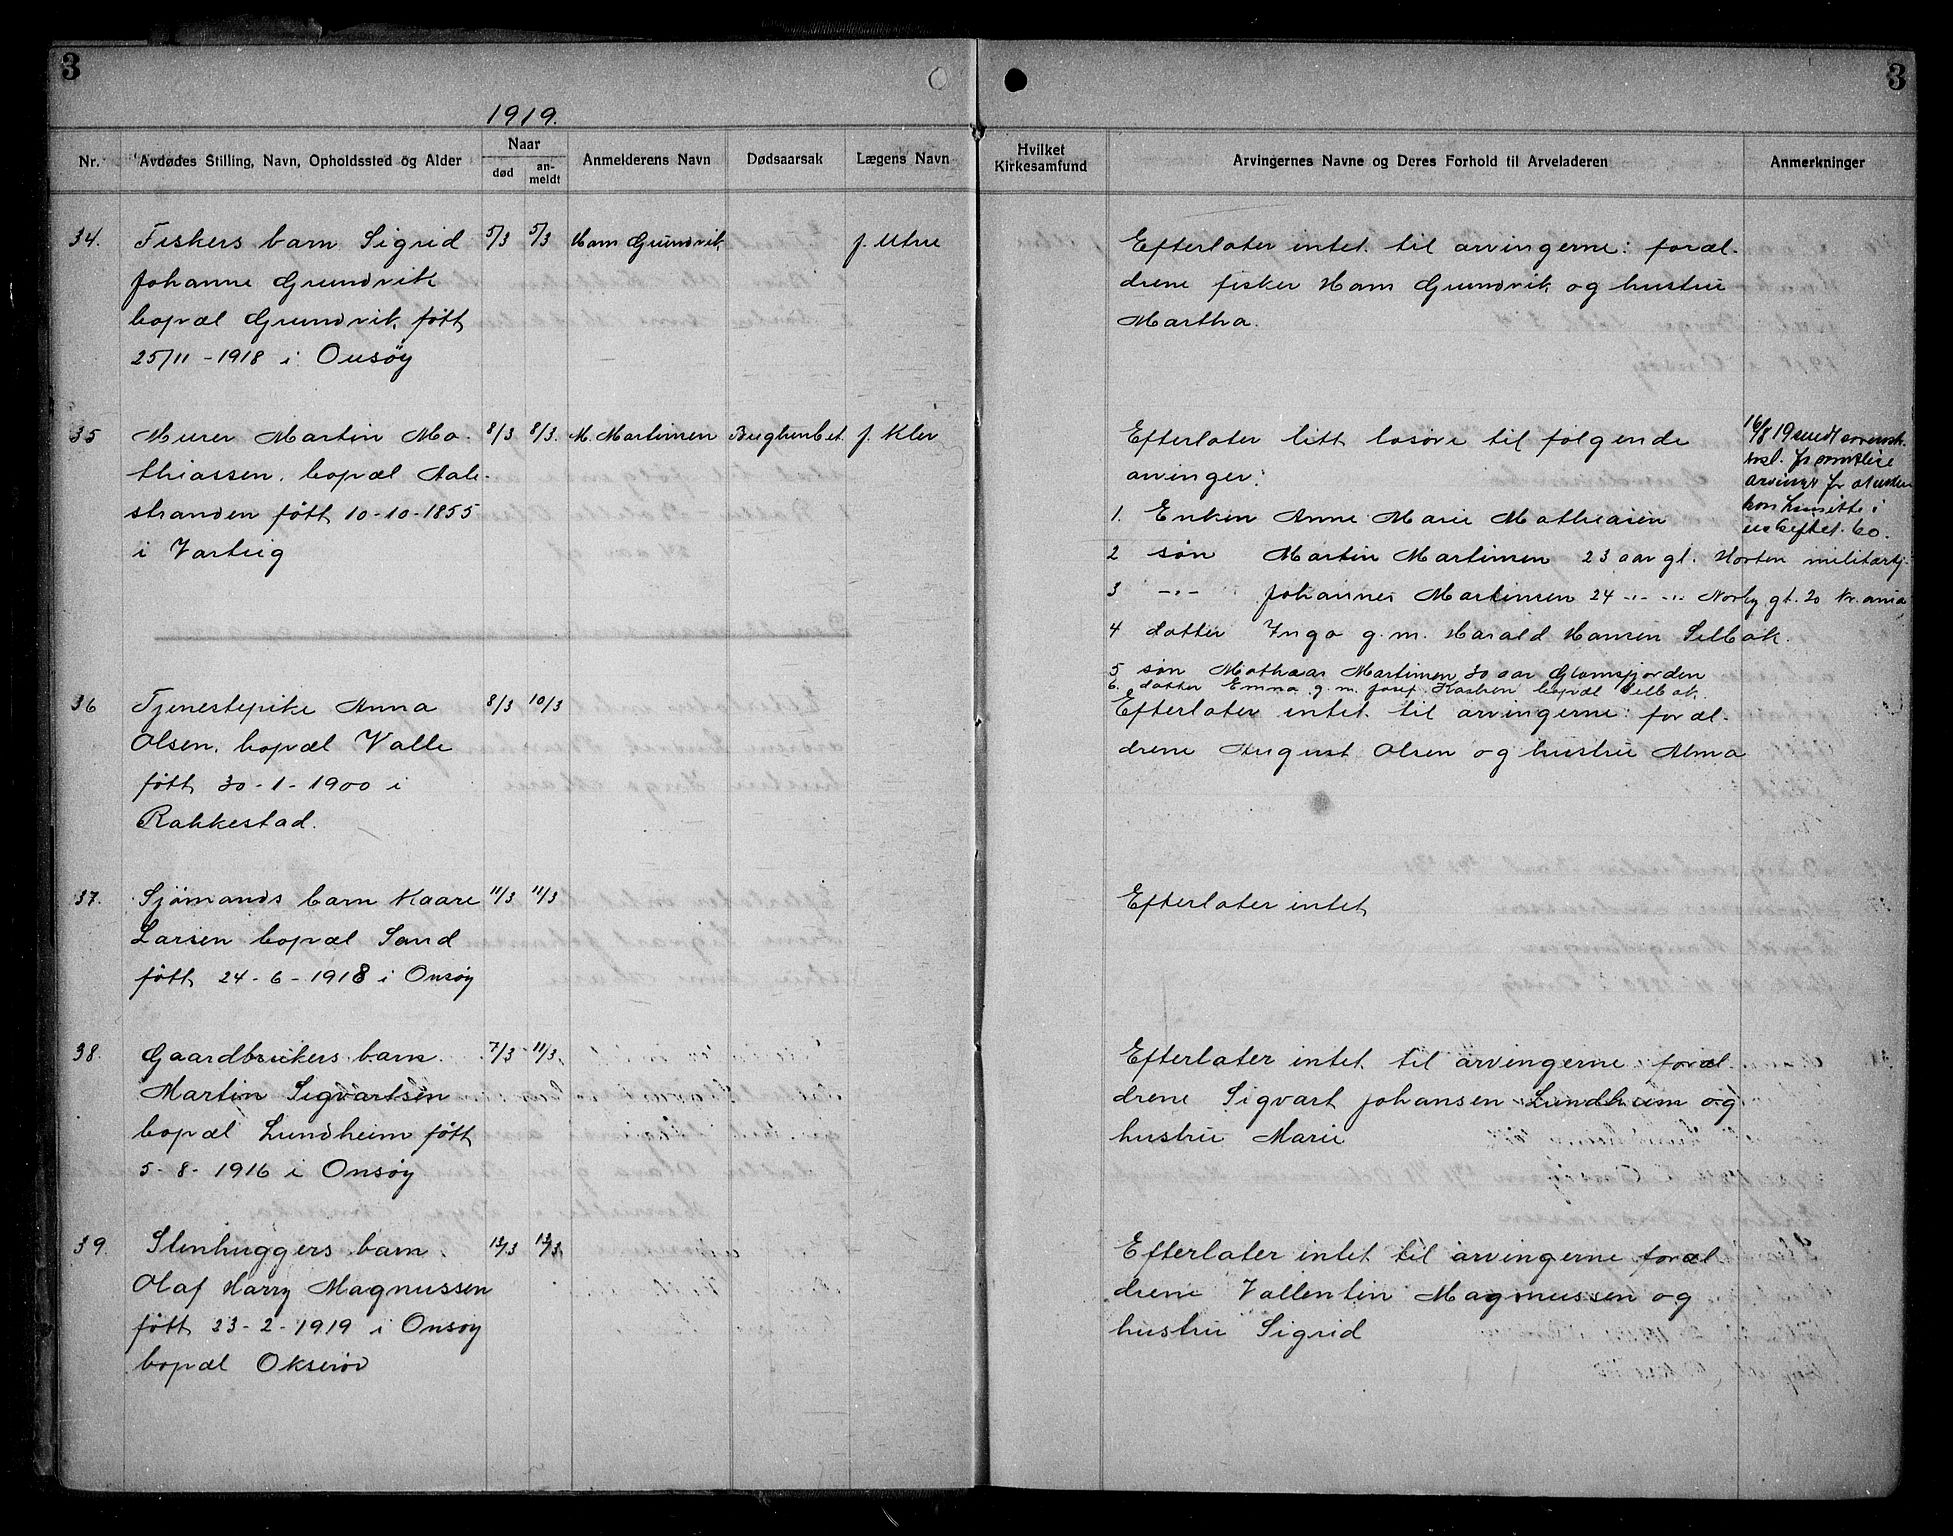 3
3
1919.
Nr.
Avdødes Stilling, Navn, Opholdssted og Alder
Naar
død
an-
meldt
Anmelderens Navn
Dødsaarsak
Lægens Navn
Hvilket
Kirkesamfund
Arvingernes Navne og Deres Forhold til Arveladeren
Anmerkninger
34. Fiskers barn Sigrid 5/3 5/3 Hans Grundvik
Johanne Grundvik
bopæl Grundvik, född
25/11 - 1918 i Onsöy
Efterlater intet til arvingerne: foræl-
drene fisker Hans Grundvik og hustru
Martha.
35 Murer Martin Ma- 8/3 8/3. M. Martinsen
thiassen, bopæl Aale-
stranden fött 10-10-1855
i Varteig
Efterlater litt løsøre til følgende
arvinger:
1. Enken Anne Marie Mathiasen
2 søn Martin Martinsen 23 aar gl. Horten militærtj.
3 -"- Johannes Martinsen 24 -"- -"- Norby gt. 20 Kr.ania
4 datter Inga g.m. Harald Hansen Selbak.
5 søn Mathias Martinsen 30 aar Glomfjorden
6. datter Emma g.m. Josef bopæl Selbak.
16/8 19 sendt
arvinger
i
uskiftet bo.
36 Tjenestepike Anna 8/3 10/3
Olsen, bopæl Valle
fött 30-1-1900 i
Rakkestad.
Efterlater intet til arvingerne: foræl-
drene August Olsen og hustru Alma
37. Sjömands barn Kaare 11/3 11/3
Larsen bopæl Sand
fött 24-6-1918 i Onsøy
Efterlater intet
38. Gaardbrukers barn 7/3 11/3
Martin Sigvartsen
bopæl Lundheim fött
5-8-1916 i Onsøy
Efterlater intet til arvingerne foræl-
drene Sigvart Johansen Lundheim og
hustru Marie
39. Stenhuggers barn 13/3 13/3
Olaf Harry Magnussen
fött 23-2-1919 i Onsøy
bopæl Oksrød
Efterlater intet til arvingerne foræl
drene Vallentin Magnussen og
hustru Sigrid